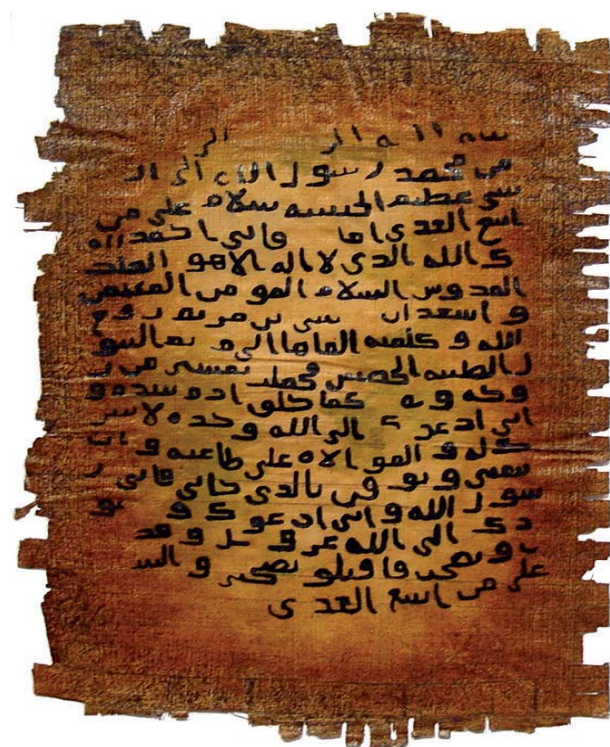 سم الله الر الر
من محمد رسول الله الى ال
سى عظيم الحبشه سلام على من
اتبع الهدى اما فانى احمد الـ
ك الله الذى لا اله الا هو الملك
القدوس السلام المومن المهيمن
و اشهد ان سى بن مريم روح
الله و كلمته القاها الى م يم البتو
ل الطيبه الحصينه فحملت بعيسى من ر
وحه و كما خلق ادم بيده و
انى ادعو ك الى الله وحده لا شر
يك له و الموالاه على طاعته و ان
تتبعنى و توقن بالذى جانى فانى ر
سول الله و انى ادعوك و جنو
دك الى الله عز و جل و قد
و نصحت فاقبلو نصيحتى و السلا
على من اتبع الهدى